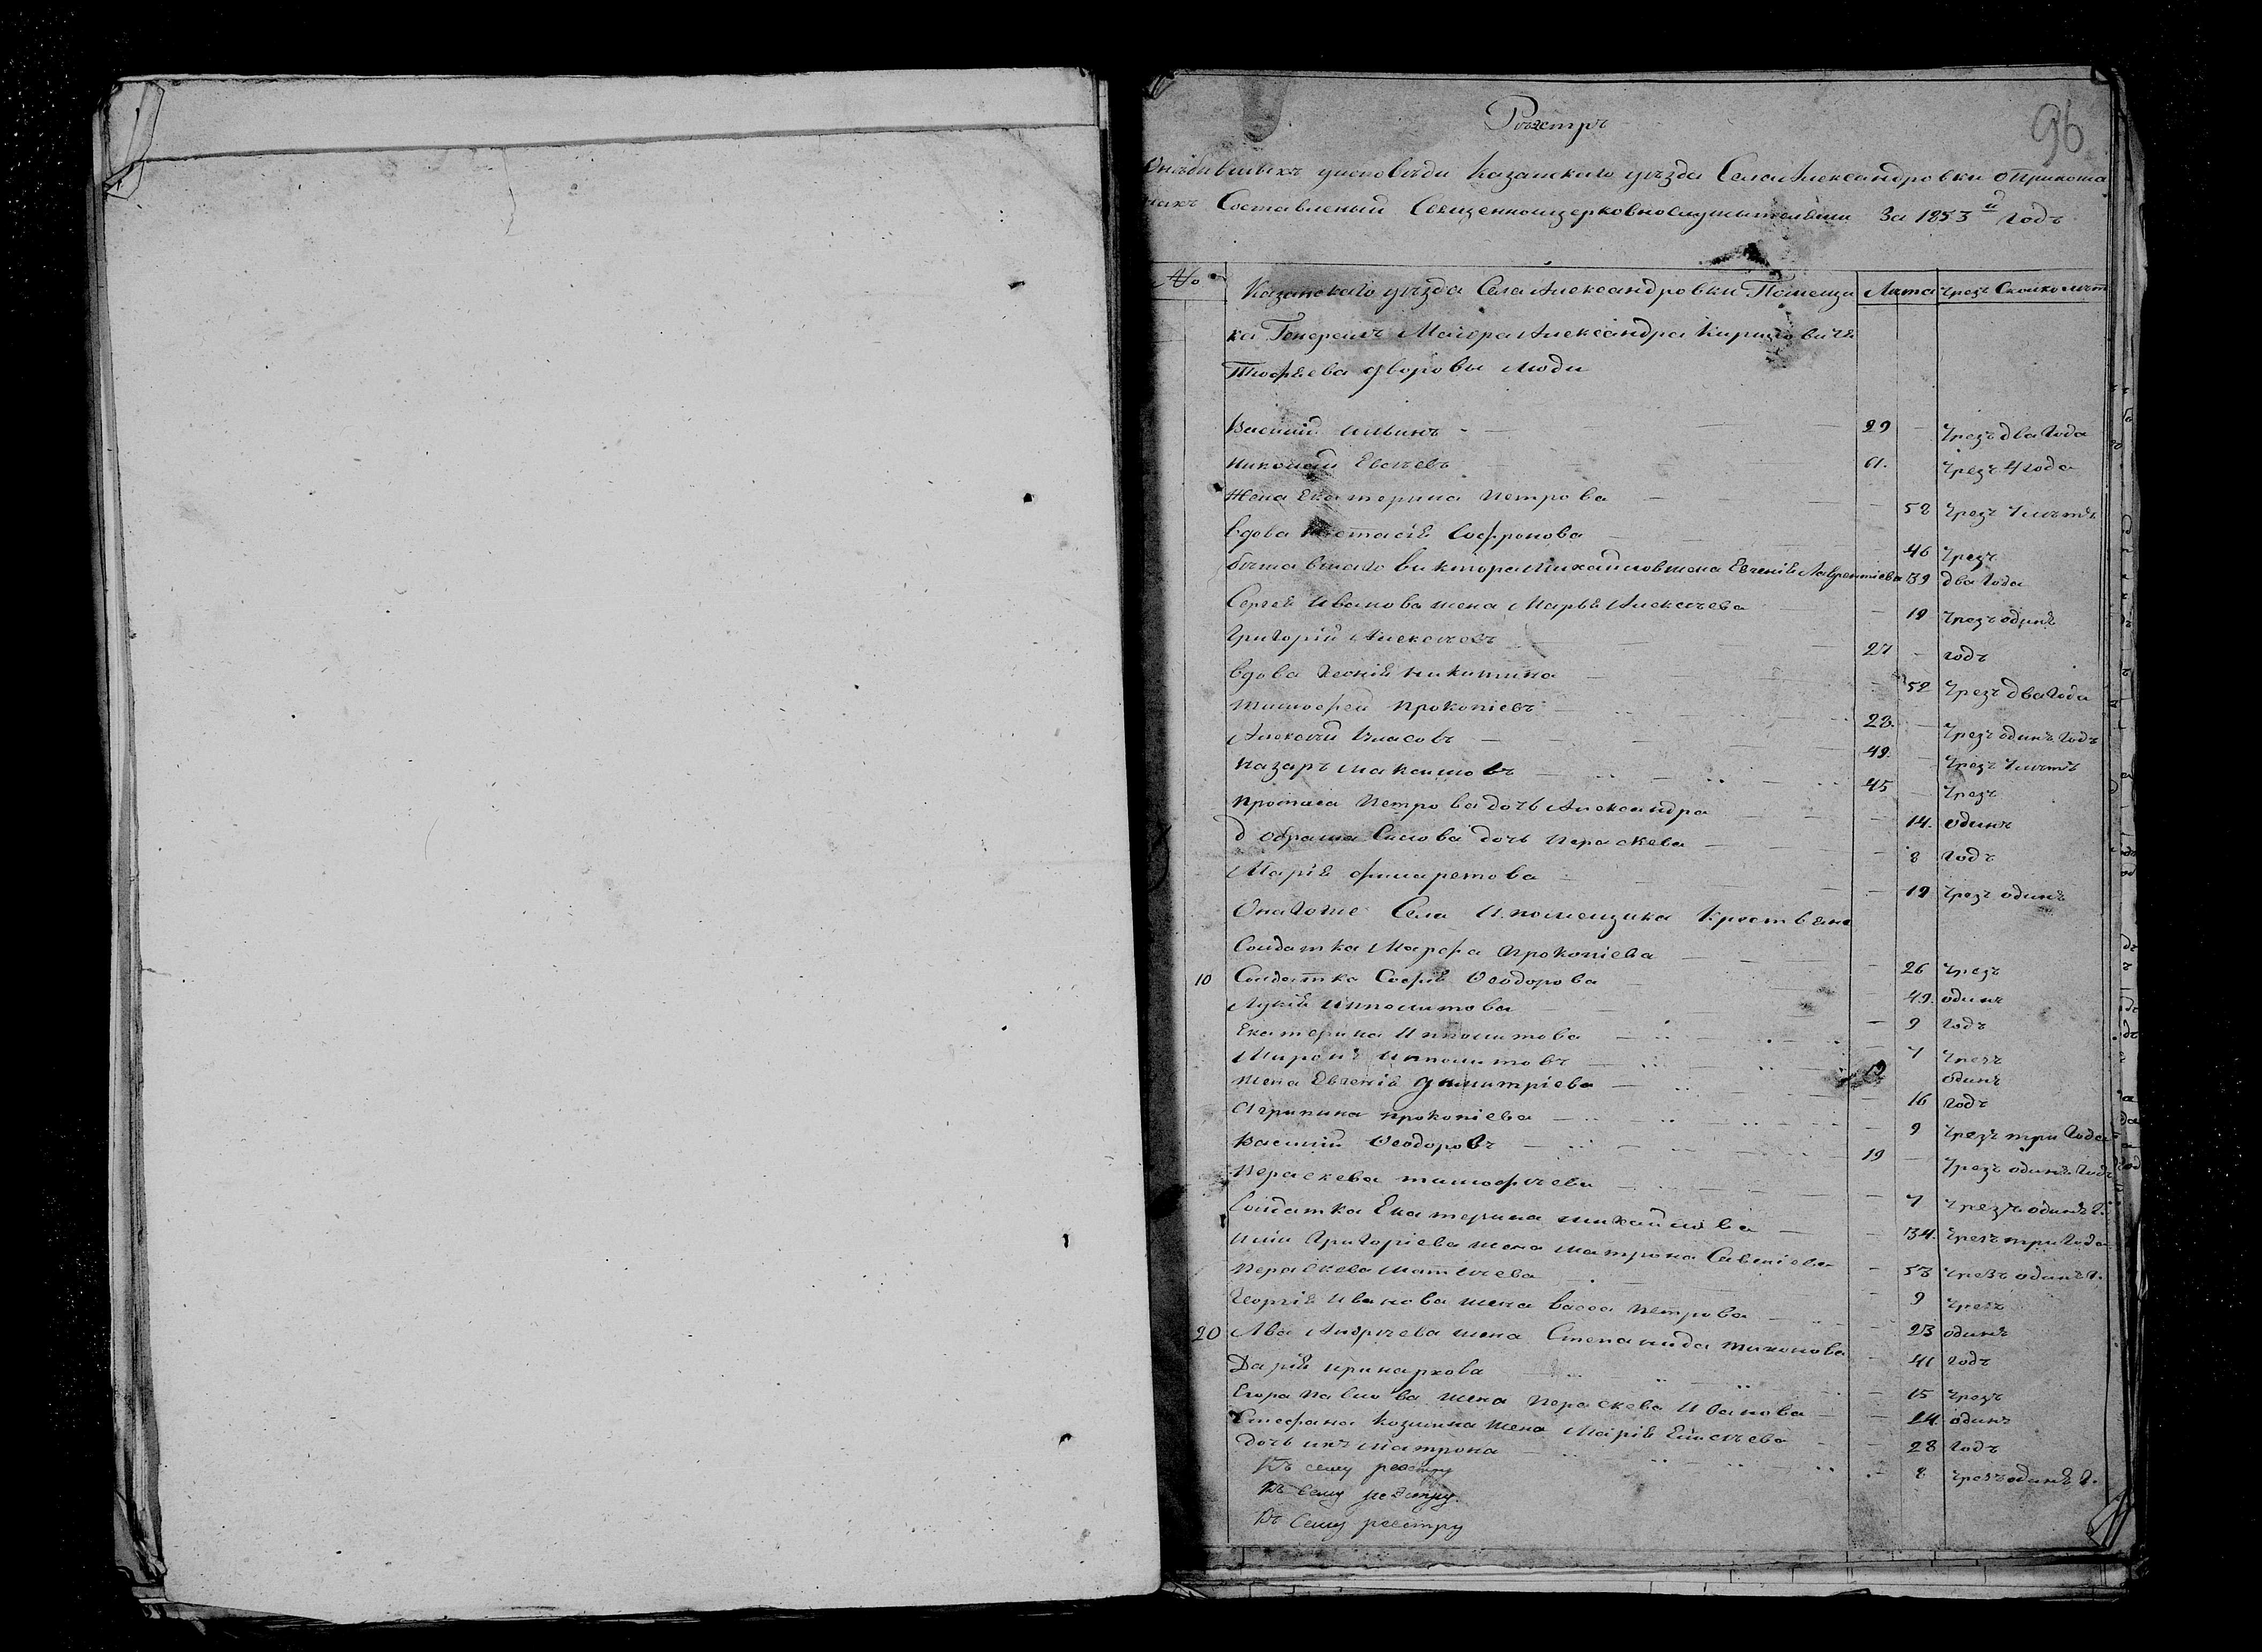 Рѣестръ
96
Онебывшихъ уисповѣди Казанскаго уѣзда Села Александровки оприхожа
нахъ Составленый Священноицерковнослужительми За 1853 й Годъ
№ Казанскаго уѣзда Села Александровки Помещи Лѣта Чрезъ Сколко лѣт
ка Генералъ Маіора Александра Кириловича
дворовы люди
Василий Ильинъ 29 Чрезъ два Года
Николай Евсѣевъ 61. Чрезъ 4 Года
Жена Екатерина Петрова 58 Чрезъ
вдова Софронова 46 Чрезъ
Виктора Михайлов жена Евгенія Лаврентіева 39 два Года
Сергея Иванова жена Марья Алексѣева 19 Чрезъ одинъ
Григорій Алексѣевъ 27 годъ
вдова Ксенія Никитина 52 Чрезъ два Года
Тимофей Прокопіевъ 23. Чрезъ одинъ Годъ
Алексѣй Власовъ 49. Чрезъ
Назаръ Максимовъ 45 Чрезъ
Петрова дочь Александра 14. одинъ
Силова дочь Параскева 8 Годъ
Марія Филаретова 19 Чрезъ одинъ
Онагоже Села Ипомещика Крестьяне
Солдатка Марфа Прокопіева 26 Чрезъ
10 Солдатка Софія Феодорова 49. одинъ
Лукія Ипполитова 9 Годъ
Екатерина Ипполитова 7 Чрезъ
Миронъ Ипполитовъ 19 одинъ
Жена Евгенія Димитріева 16 Годъ
Агрипина Прокопіева 9 Чрезъ три Года
Василий Феодоровъ 19 Чрезъ одинъ Годъ
Параскева Тимофѣева 7 Чрезъ одинъ Г.
Солдатка Екатерина Михайлова 34. Чрезъ три Года
Григоріева жена Матрона Савеліева 53 Чрезъ одинъ Г.
Параскева Матвѣева 9 Чрезъ
Георгія Иванова жена Васса Петрова 23 одинъ
20 Льва Андрѣева жена Степанида Тихонова 41 Годъ
Дарія Иринархова 15 Чрезъ
Егора Павлова жена Параскева Иванова 24. одинъ
Стефана Козмина жена Марія Елисѣева 28 Годъ
дочь ихъ Матрона 8 Чрезъ одинъ Г.
Къ сему реестру
Къ сему реэстру.
Къ сему реестру